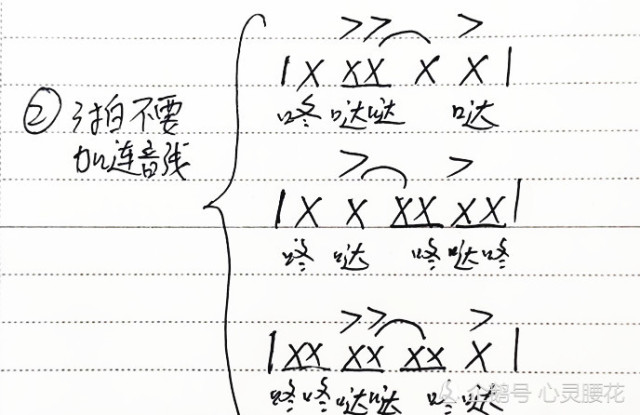 >> >
| X XX X X |
咚 哒哒 哒
② 3拍不要
加连音线
> >
| X X XX XX |
咚 哒 咚哒咚
>> >
| XX XX XX X |
咚咚哒哒 咚 哒
企鹅号 心灵腰花